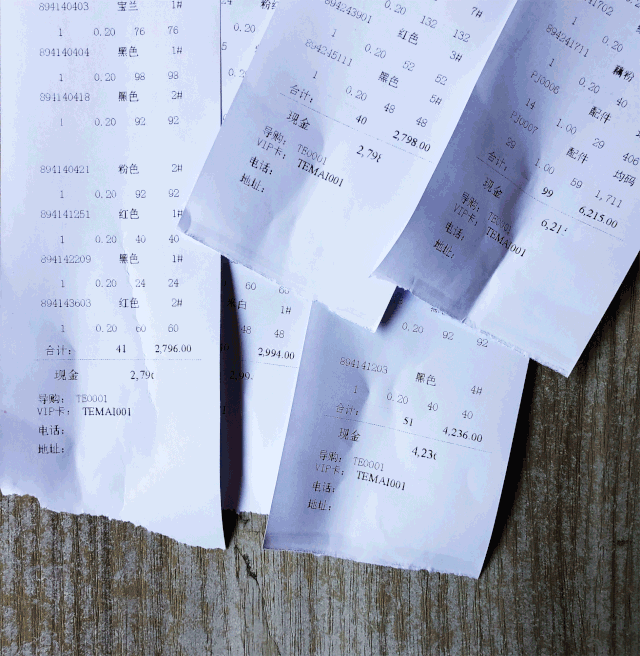 894140403 宝兰 1#
1 0.20 76 76
894140404 黑色 1#
1 0.20 98 98
894140418 黑色 2#
1 0.20 92 92
894140421 粉色 2#
1 0.20 92 92
894141251 红色 1#
1 0.20 40 40
894142209 黑色 1#
1 0.20 24 24
894143603 红色 2#
1 0.20 60 60
合计： 41 2,796.00
现金 2,79
导购： TE0001
VIP卡： TEMAI001
电话：
地址：
60
白 1#
48 48
2,994.00
7#
0.20 132 132
894243901 红色 3#
1 0.20 52 52
894245111 黑色 5#
1 0.20 48 48
合计： 40 2,798.00
现金 2,79
导购： TE0001
VIP卡： TEMAI001
电话：
地址：
0.20 92 92
894141203 黑色 4#
1 0.20 40 40
合计： 51 4,236.00
现金 4,23
导购： TE0001
VIP卡： TEMAI001
电话：
地址：
1 0.20
894241711 藕粉
1 0.20 40
PJ0006 配件
14 1.00 29 406
PJ0007 配件 均码
29 1.00 59 1,711
合计： 99 6,215.00
现金 6,21
导购： TE0001
VIP卡： TEMAI001
电话：
地址：